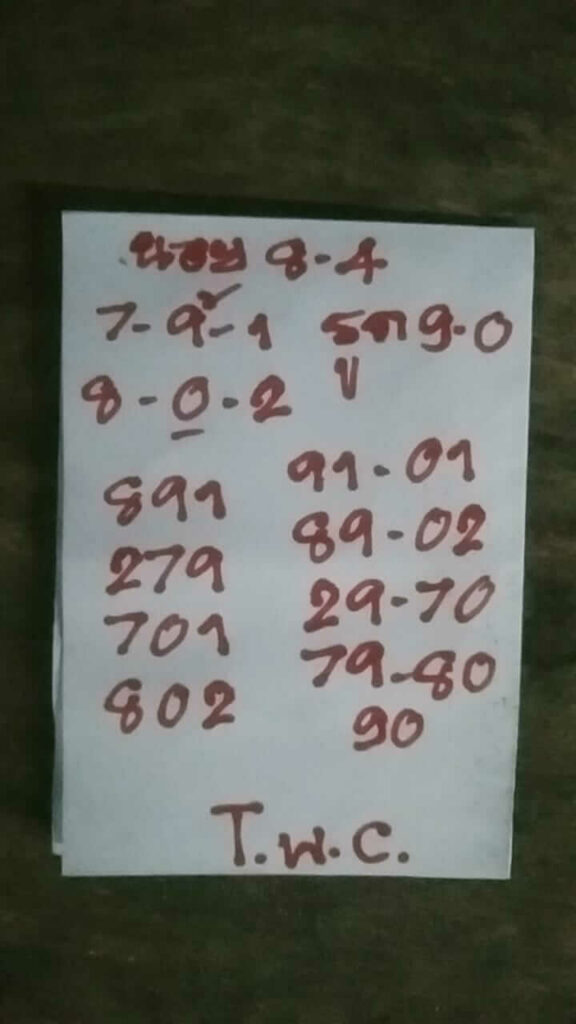 นอย 8-4
7-9-1 รูด 9-0
8-0-2
891 91-01
279 89-02
701 29-70
802 79-80
90
T.พ.C.